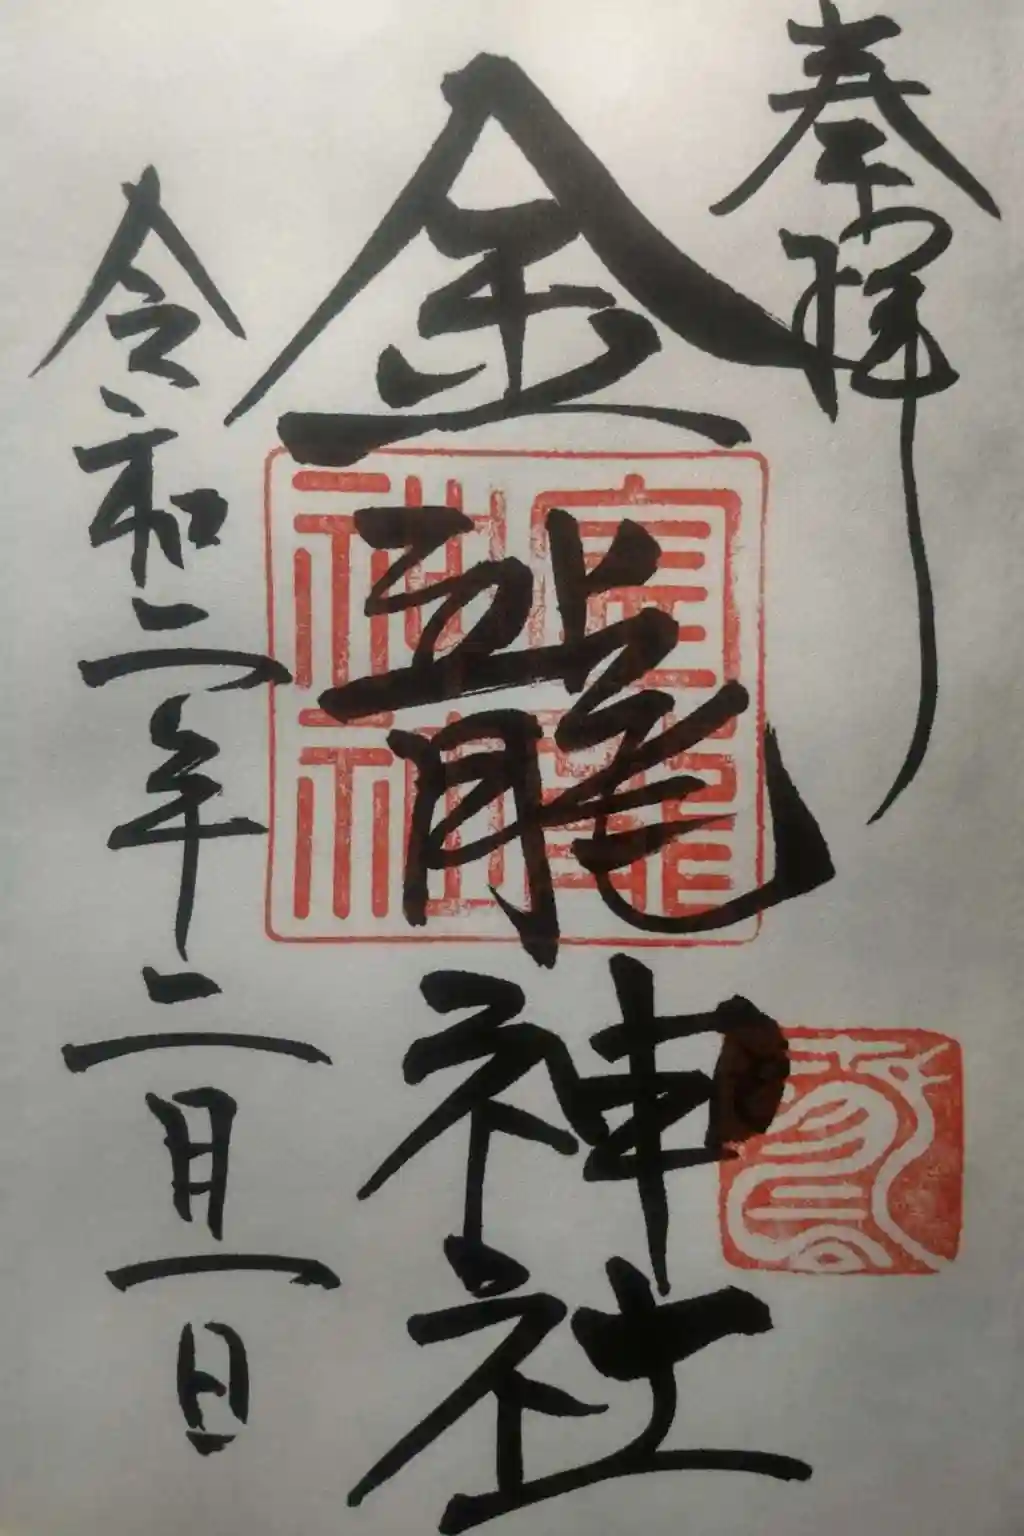 奉拝
金龍神社
令和二年二月一日